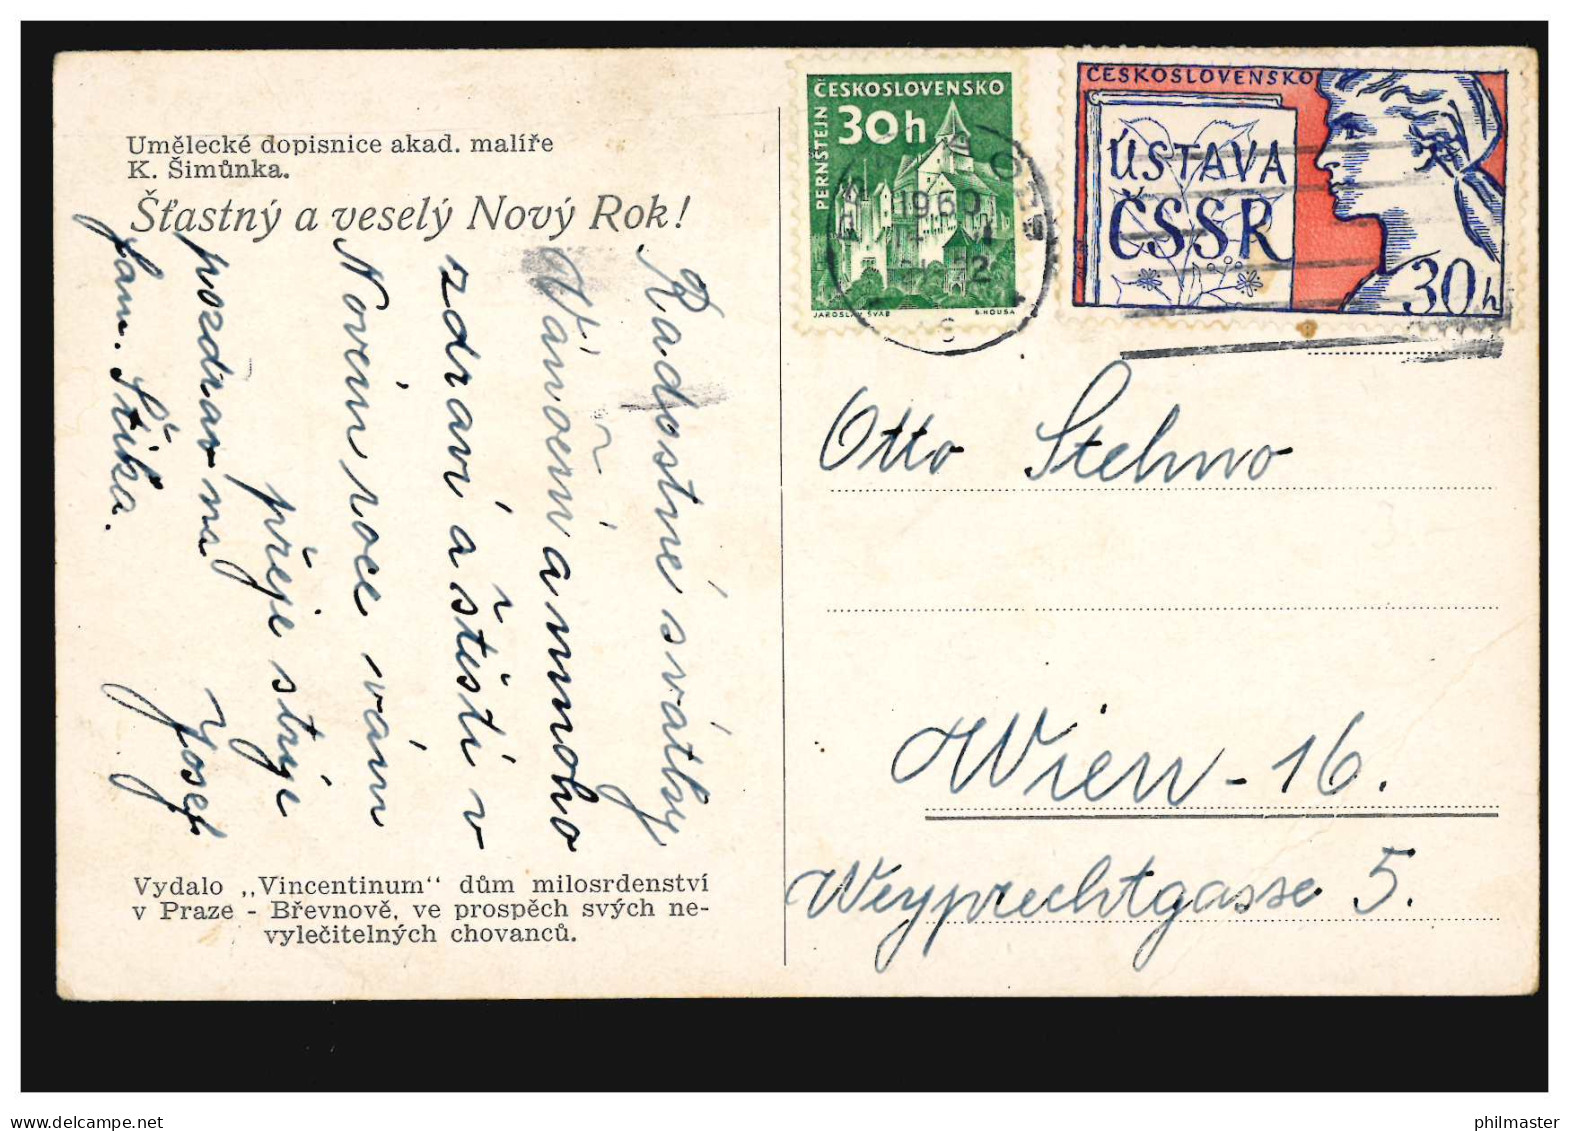 Umělecké dopisnice akad. malíře
K. Šimůnka.
Šťastný a veselý Nový Rok!
Radostné svátky
Vánoční a mnoho
zdraví a štěstí v
Novém roce vám
přeje strýc
Josef
pozdrav na
fam. Šiška.
Vydalo „Vincentinum“ dům milosrdenství
v Praze - Břevnově, ve prospěch svých ne-
vylečitelných chovanců.
ČESKOSLOVENSKO
30h
PERNŠTEJN
JAROSLAV ŠVÁB
B. HOUSA
1960
ČESKOSLOVENSKO
ÚSTAVA
ČSSR
30h
Otto Stehno
Wien - 16.
Weyprechtgasse 5.
philmaster